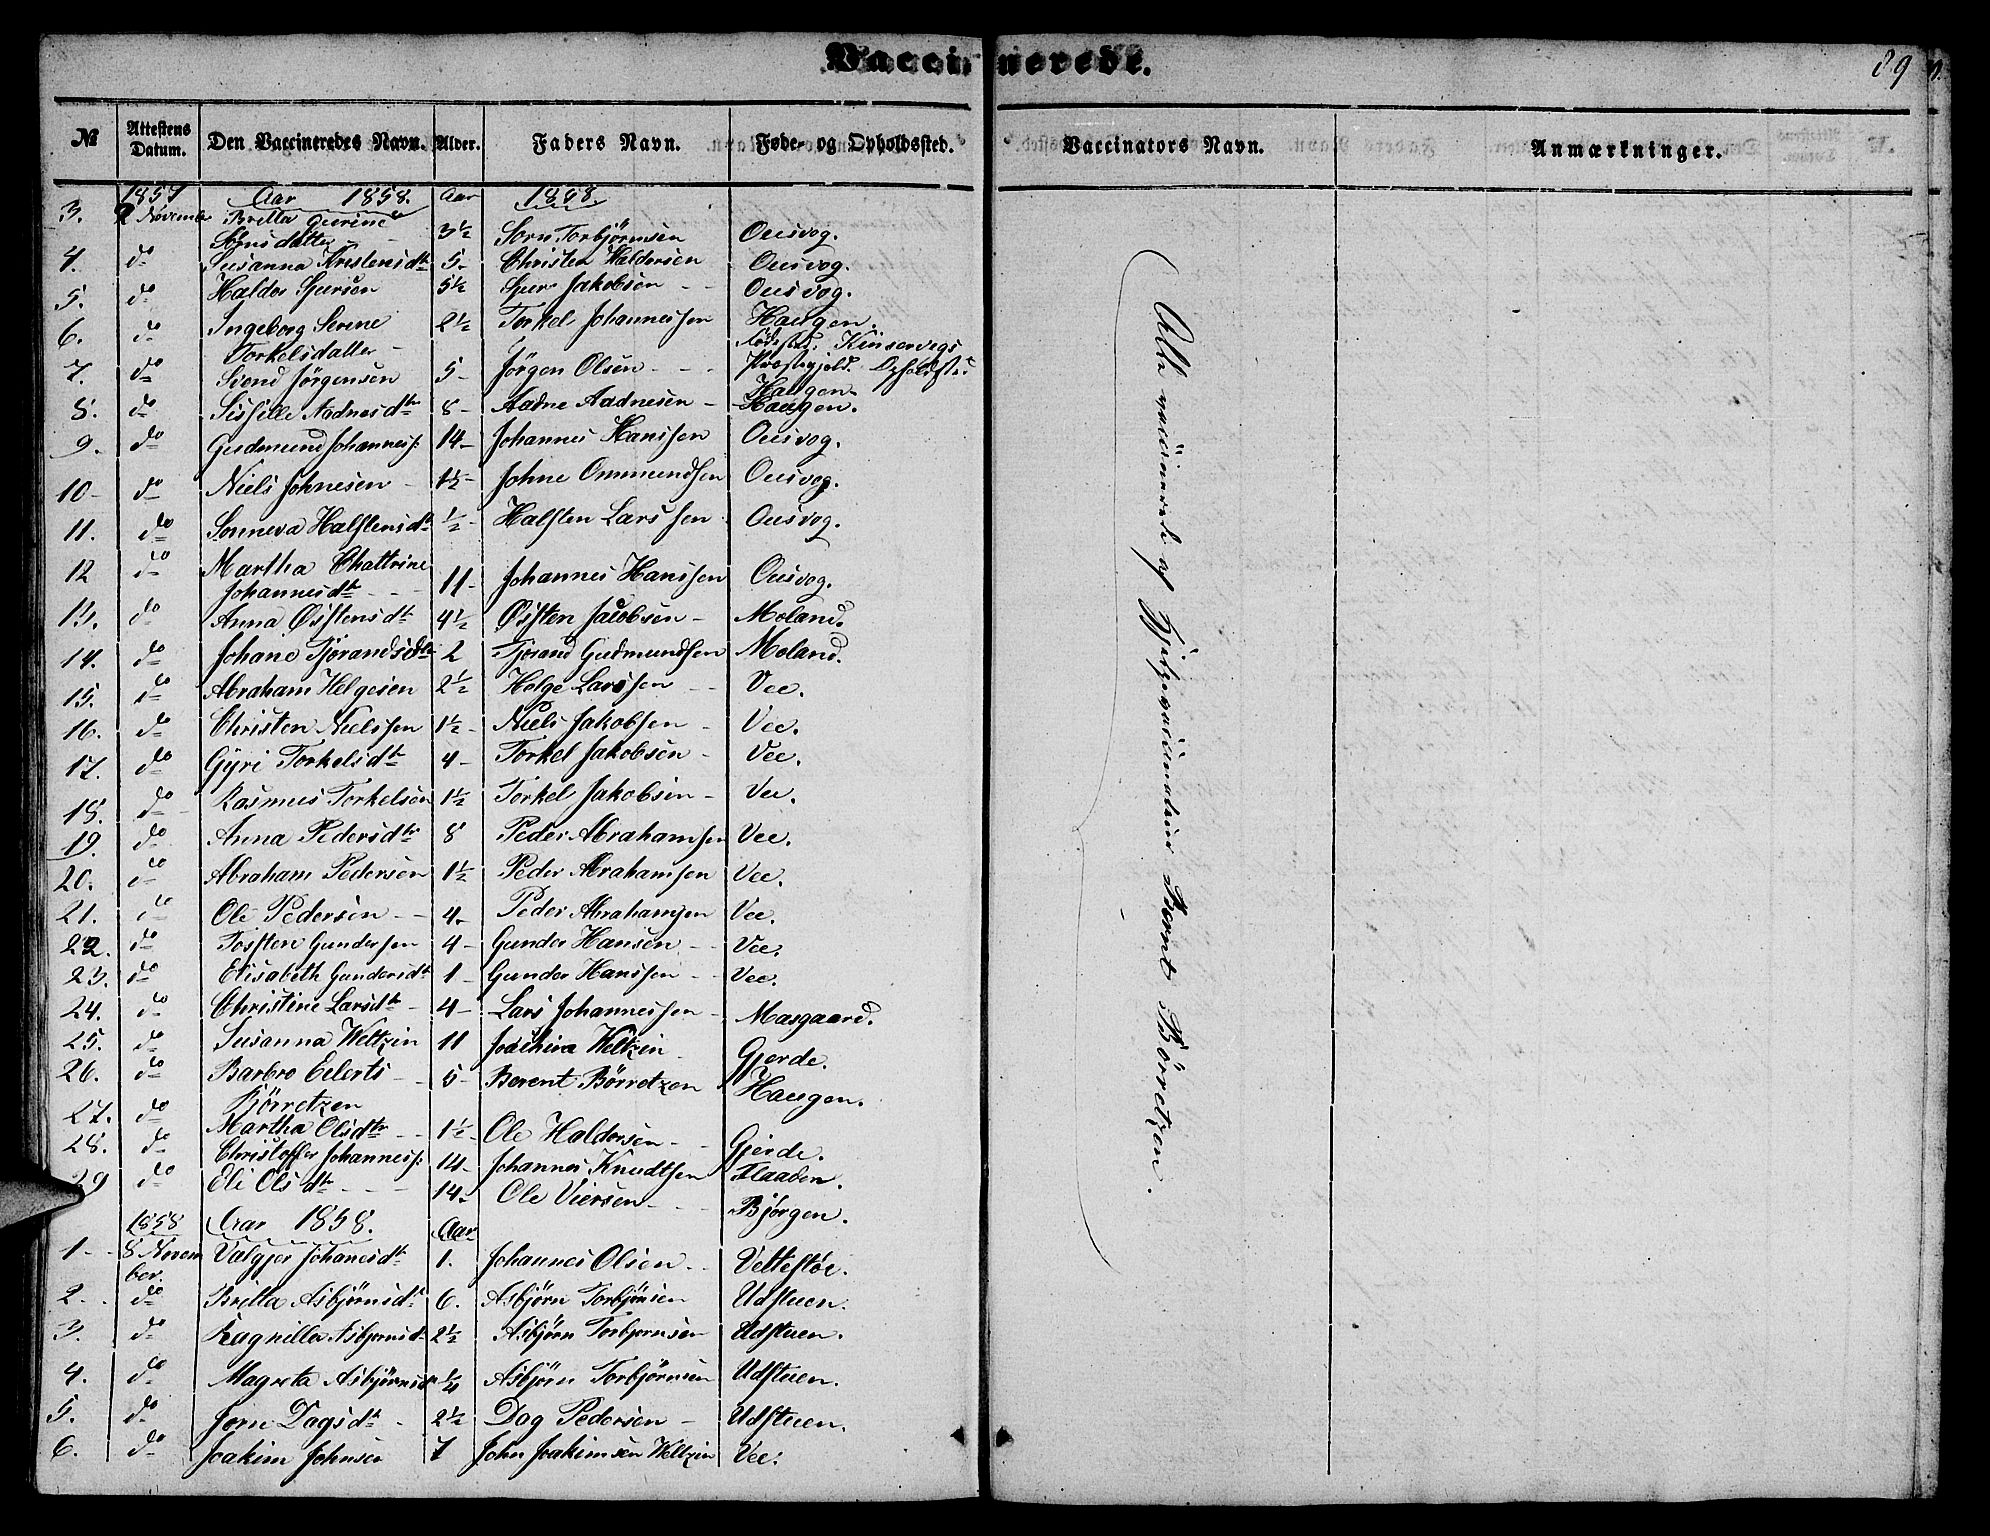 Vaccinerede.
89
№ Attestens Datum. Den Vaccineredes Navn. Alder. Faders Navn. Føde- og Opholdssted. Vaccinators Navn. Anmærkninger.
1857 Aar 1858. Aar 1858.
3. 2 Novemb Britta Gurine
Sørnsdatter 3½ Sorn Torbjörnsen Ousvog.
4. do Susanna Kristensdtr 5- Christen Haldorsen Ousvog.
5. do Haldor Sjursen 5½ Sjur Jakobsen - - Ousvog.
6. do Ingeborg Serine 2½ Torkel Johannessen Haugen.
Torkelsdatter - Fødested: Kinservigs
7. do Svend Jörgensen 5- Jörgen Olsen - - - Præstegjeld. Opholdsted
Haugen
8. do Sissille Aadnesdtr 8- Aadne Aadnesen - Haugen.
9. do Gudmund Johanness: 14- Johannes Hanssen Ousvog.
10- do Niels Johnesen - 1½- Johne Ommundsen Ousvog.
11. do Sonneva Halstensdtr ½- Halsten Larssen Ousvog.
12 do Martha Chattrine
Johannesdtr - - - 11- Johannes Hanssen Ousvog.
13. do Anna Øistensdtr 4½ Øisten Jacobsen - Moland.
14. do Johane Tjörandsdtr 2 Tjörand Gudmundsen Moland.
15. do Abraham Helgesen 2½ Helge Larssen - - Vee.
16. do Christen Nielssen 1½- Niels Jakobsen - Vee.
17. do Gyri Torkelsdtr 4- Torkel Jakobsen - Vee.
18. do Rasmus Torkelsen 1½ Torkel Jakobsen - Vee.
19. do Anna Pedersdtr 8 Peder Abrahamsen Vee.
20. do Abraham Pedersen 1½ Peder Abrahamsen Vee.
21. do Ole Pedersen - - 4- Peder Abrahamsen Vee.
22. do Tosten Gundersen 4- Gunder Hansen - - Vee.
23. do Elisabeth Gundersdtr 1- Gunder Hanssen - - Vee.
24. do Christine Larsdtr - 4- Lars Johannessen - Masgaard.
25. do Susanna Weltzin 11 Joachim Weltzin Gjerde.
26. do Barbro Eelerts - - 5- Berent Börretzen Haugen.
Börretzen
27. do Martha Olsdtr - - 1½- Ole Haldorsen - - Gjerde.
28. do Christoffer Johanness: 14- Johannes Knudtsen Flaaden.
29 do Eli Olsdtr - - - 14- Ole Viersen - - Bjørgen.
1858 Aar 1858. Aar
1- - 8 Novem
ber. Valgjer Johanesdtr 1. Johannes Olsen - Vettestøe.
2- - do Britta Asbjörnsdtr 6. Asbjörn Torbjörnsen Udstuen.
3. do Ragnilla Asbjørnsdtr 2½ Asbjörn Torbjørnsen Udstuen.
4. do Magreta Asbjörnsdtr ¼ Asbjörn Torbjörnsen Udstuen.
5. do Jorn Dagsdtr - 2½ Dag Pedersen - Udstuen.
6. do Joakim Johnsen 7 John Joakimsen Weltzin Vee.
Alle vaccinerede af Hjelpevaccinateur Bernt Börretzen.